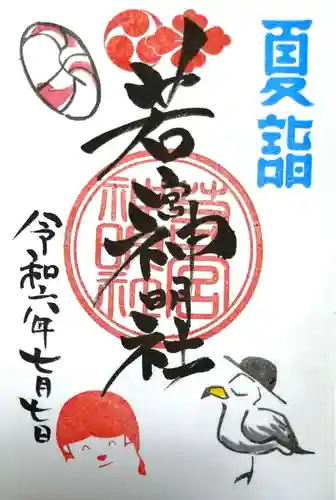 夏詣
若宮神明社
若宮神明社
令和六年七月七日